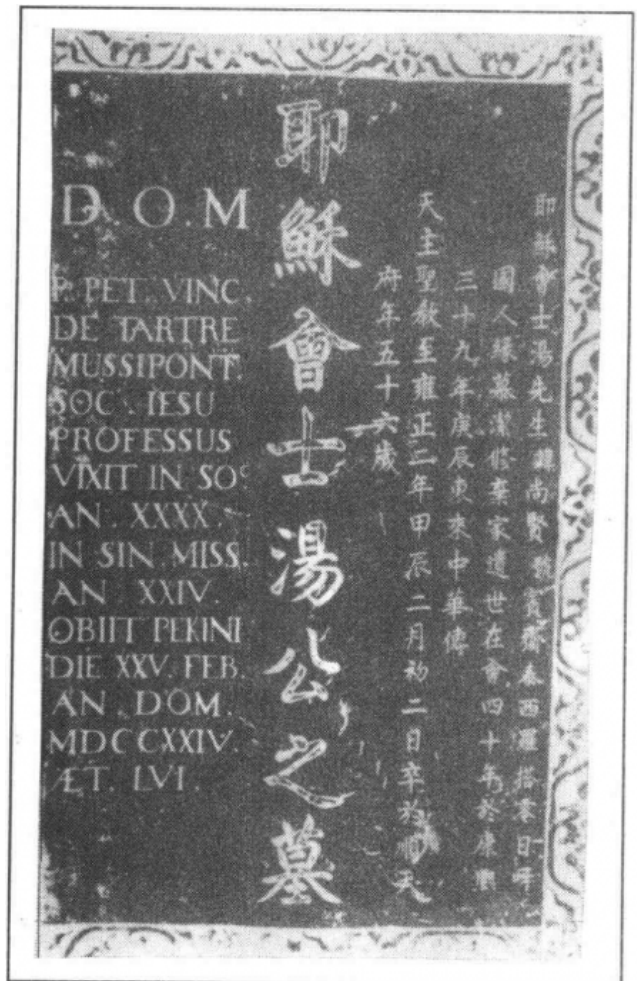 D.O.M
P. PET. VINC.
DE TARTRE
MUSSIPONT.
SOC. IESU
PROFESSUS
VIXIT IN SOC.
AN. XXXX.
IN SIN. MISS.
AN XXIV.
OBIIT PEKINI
DIE XXV. FEB.
AN. DOM.
MDCCXXIV.
ÆT. LVI.
耶穌會士湯公之墓
耶穌會士湯先生諱尚賢號賓齋泰西羅搭零日
國人緣慕潔修棄家遺世在會四十年於康熙
三十九年庚辰東來中華傳
天主聖教至雍正二年甲辰二月初二日卒於順天
府年五十六歲